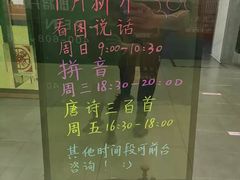 1月新介
看图说话
周日 9:00-10:30
拼音
周三 18:30-20:00
唐诗三百首
周五 16:30-18:00
其他时间段可前台
咨询! :)